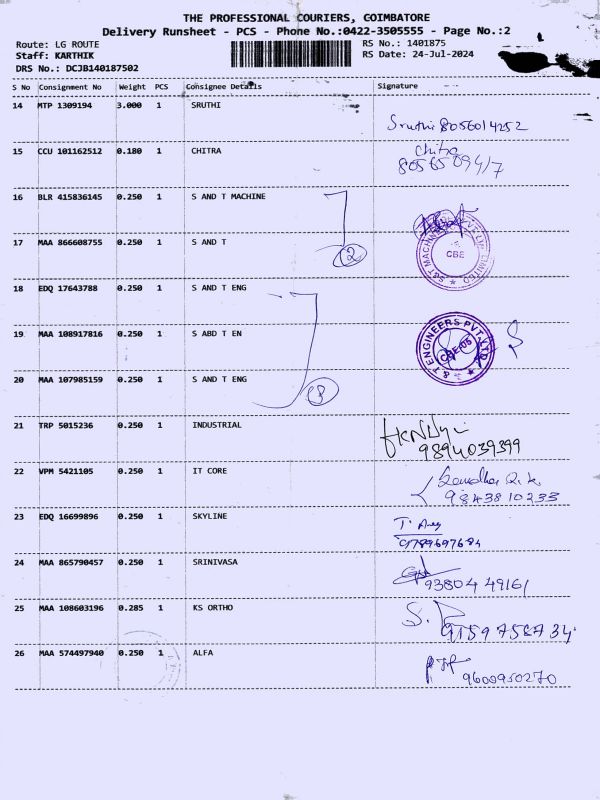 THE PROFESSIONAL COURIERS, COIMBATORE
Delivery Runsheet - PCS - Phone No.:0422-3505555 - Page No.:2
Route: LG ROUTE
RS No.: 1401875
Staff: KARTHIK
RS Date: 24-Jul-2024
DRS No.: DCJB140187502
S No Consignment No Weight PCS Consignee Details Signature
14 MTP 1309194 3.000 1 SRUTHI
Sruthi 8056014252
15 CCU 101162512 0.180 1 CHITRA
Chitra
16 BLR 415836145 0.250 1 S AND T MACHINE
17 MAA 866608755 0.250 1 S AND T
2
CBE
18 EDQ 17643788 0.250 1 S AND T ENG
19 MAA 108917816 0.250 1 S ABD T EN
S & T ENGINEERS PVT LTD
CBE-05
20 MAA 107985159 0.250 1 S AND T ENG
21 TRP 5015236 0.250 1 INDUSTRIAL
9894039399
22 VPM 5421105 0.250 1 IT CORE
9843810233
23 EDQ 16699896 0.250 1 SKYLINE
9789697684
24 MAA 865790457 0.250 1 SRINIVASA
93804 49161
25 MAA 108603196 0.285 1 KS ORTHO
26 MAA 574497940 0.250 1 ALFA
9600950270